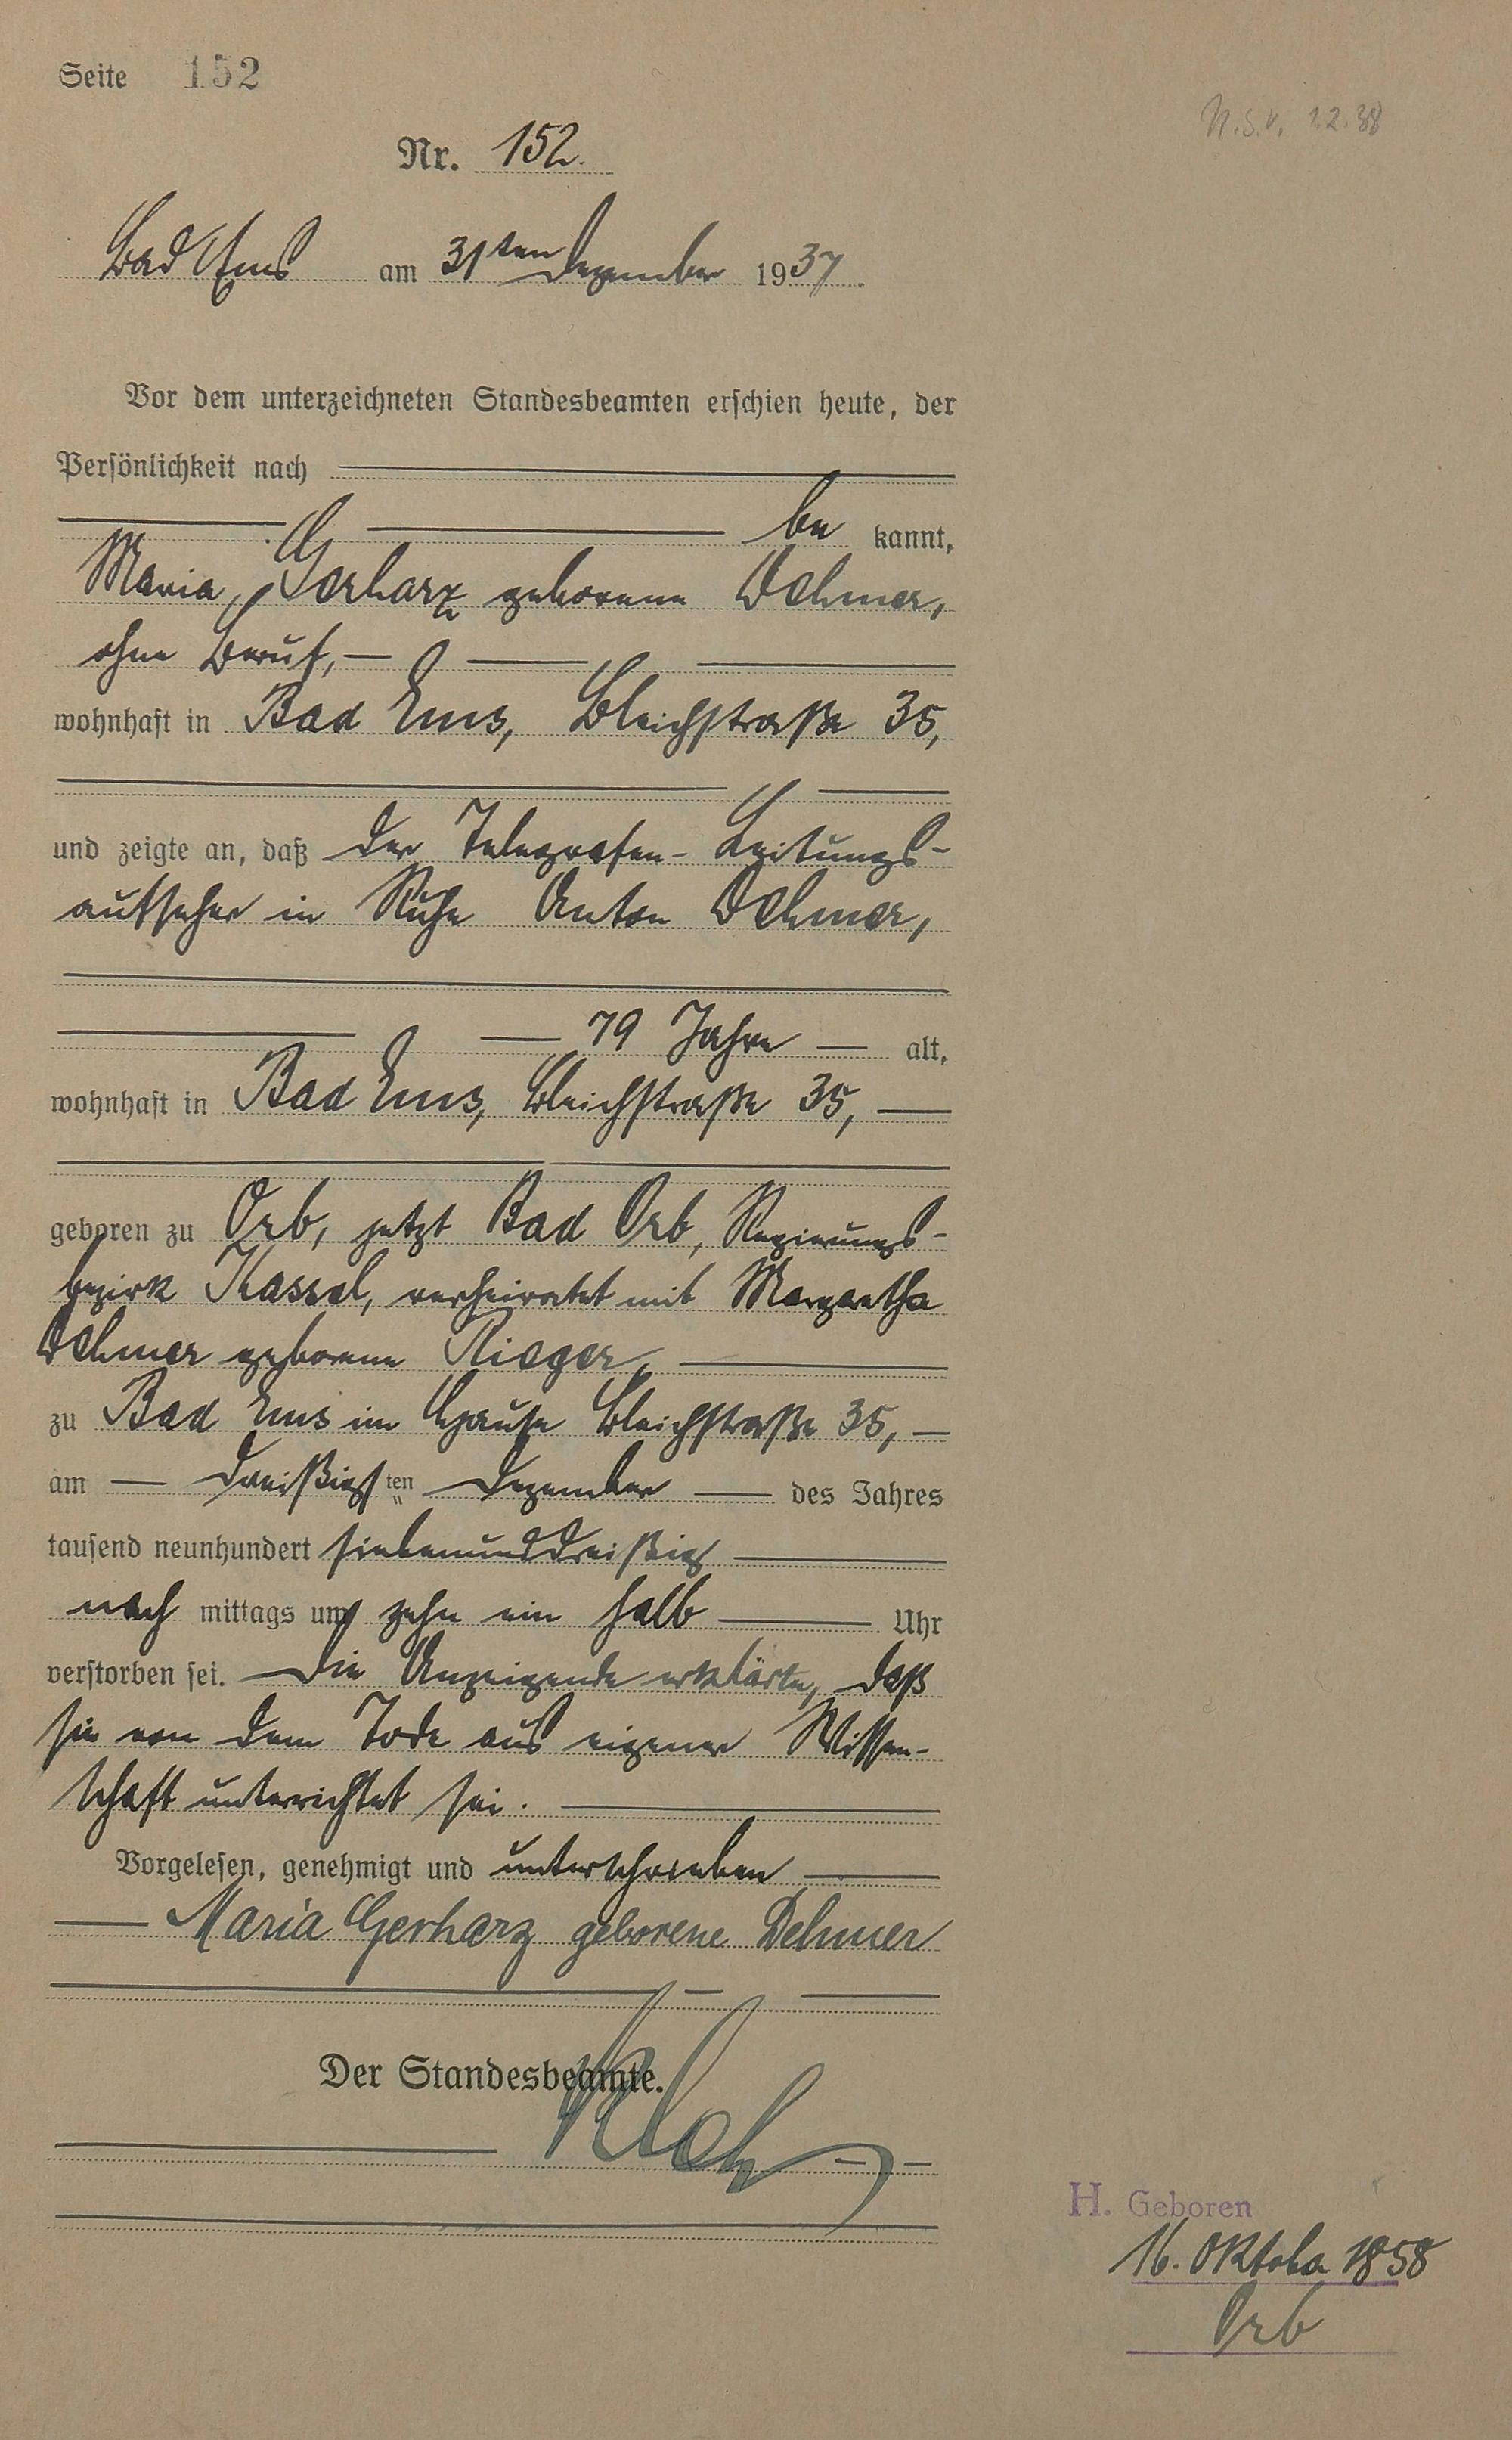 Seite 152
N.S.V. 1.2.38
Nr. 152.
Bad Ems am 31ten Dezember 1937.
Vor dem unterzeichneten Standesbeamten erschien heute, der
Persönlichkeit nach
be kannt,
Maria Gerharz geborene Dehmer,
ohne Beruf,
wohnhaft in Bad Ems, Bleichstraße 35,
und zeigte an, daß der Telegrafen-Leitungs-
aufseher in Ruhe Anton Dehmer,
79 Jahre alt,
wohnhaft in Bad Ems, Bleichstraße 35,
geboren zu Orb, jetzt Bad Orb, Regierungs-
bezirk Kassel, verheiratet mit Margaretha
Dehmer geborene Rieger,
zu Bad Ems im Hause Bleichstraße 35,
am dreißigsten Dezember des Jahres
tausend neunhundert siebenunddreißig
nach mittags um zehn ein halb Uhr
verstorben sei. Die Anzeigende erklärte, daß
sie von dem Tode aus eigener Wissen-
schaft unterrichtet sei.
Vorgelesen, genehmigt und unterschrieben
Maria Gerharz geborene Dehmer
Der Standesbeamte.
H. Geboren
16. Oktober 1858
Orb